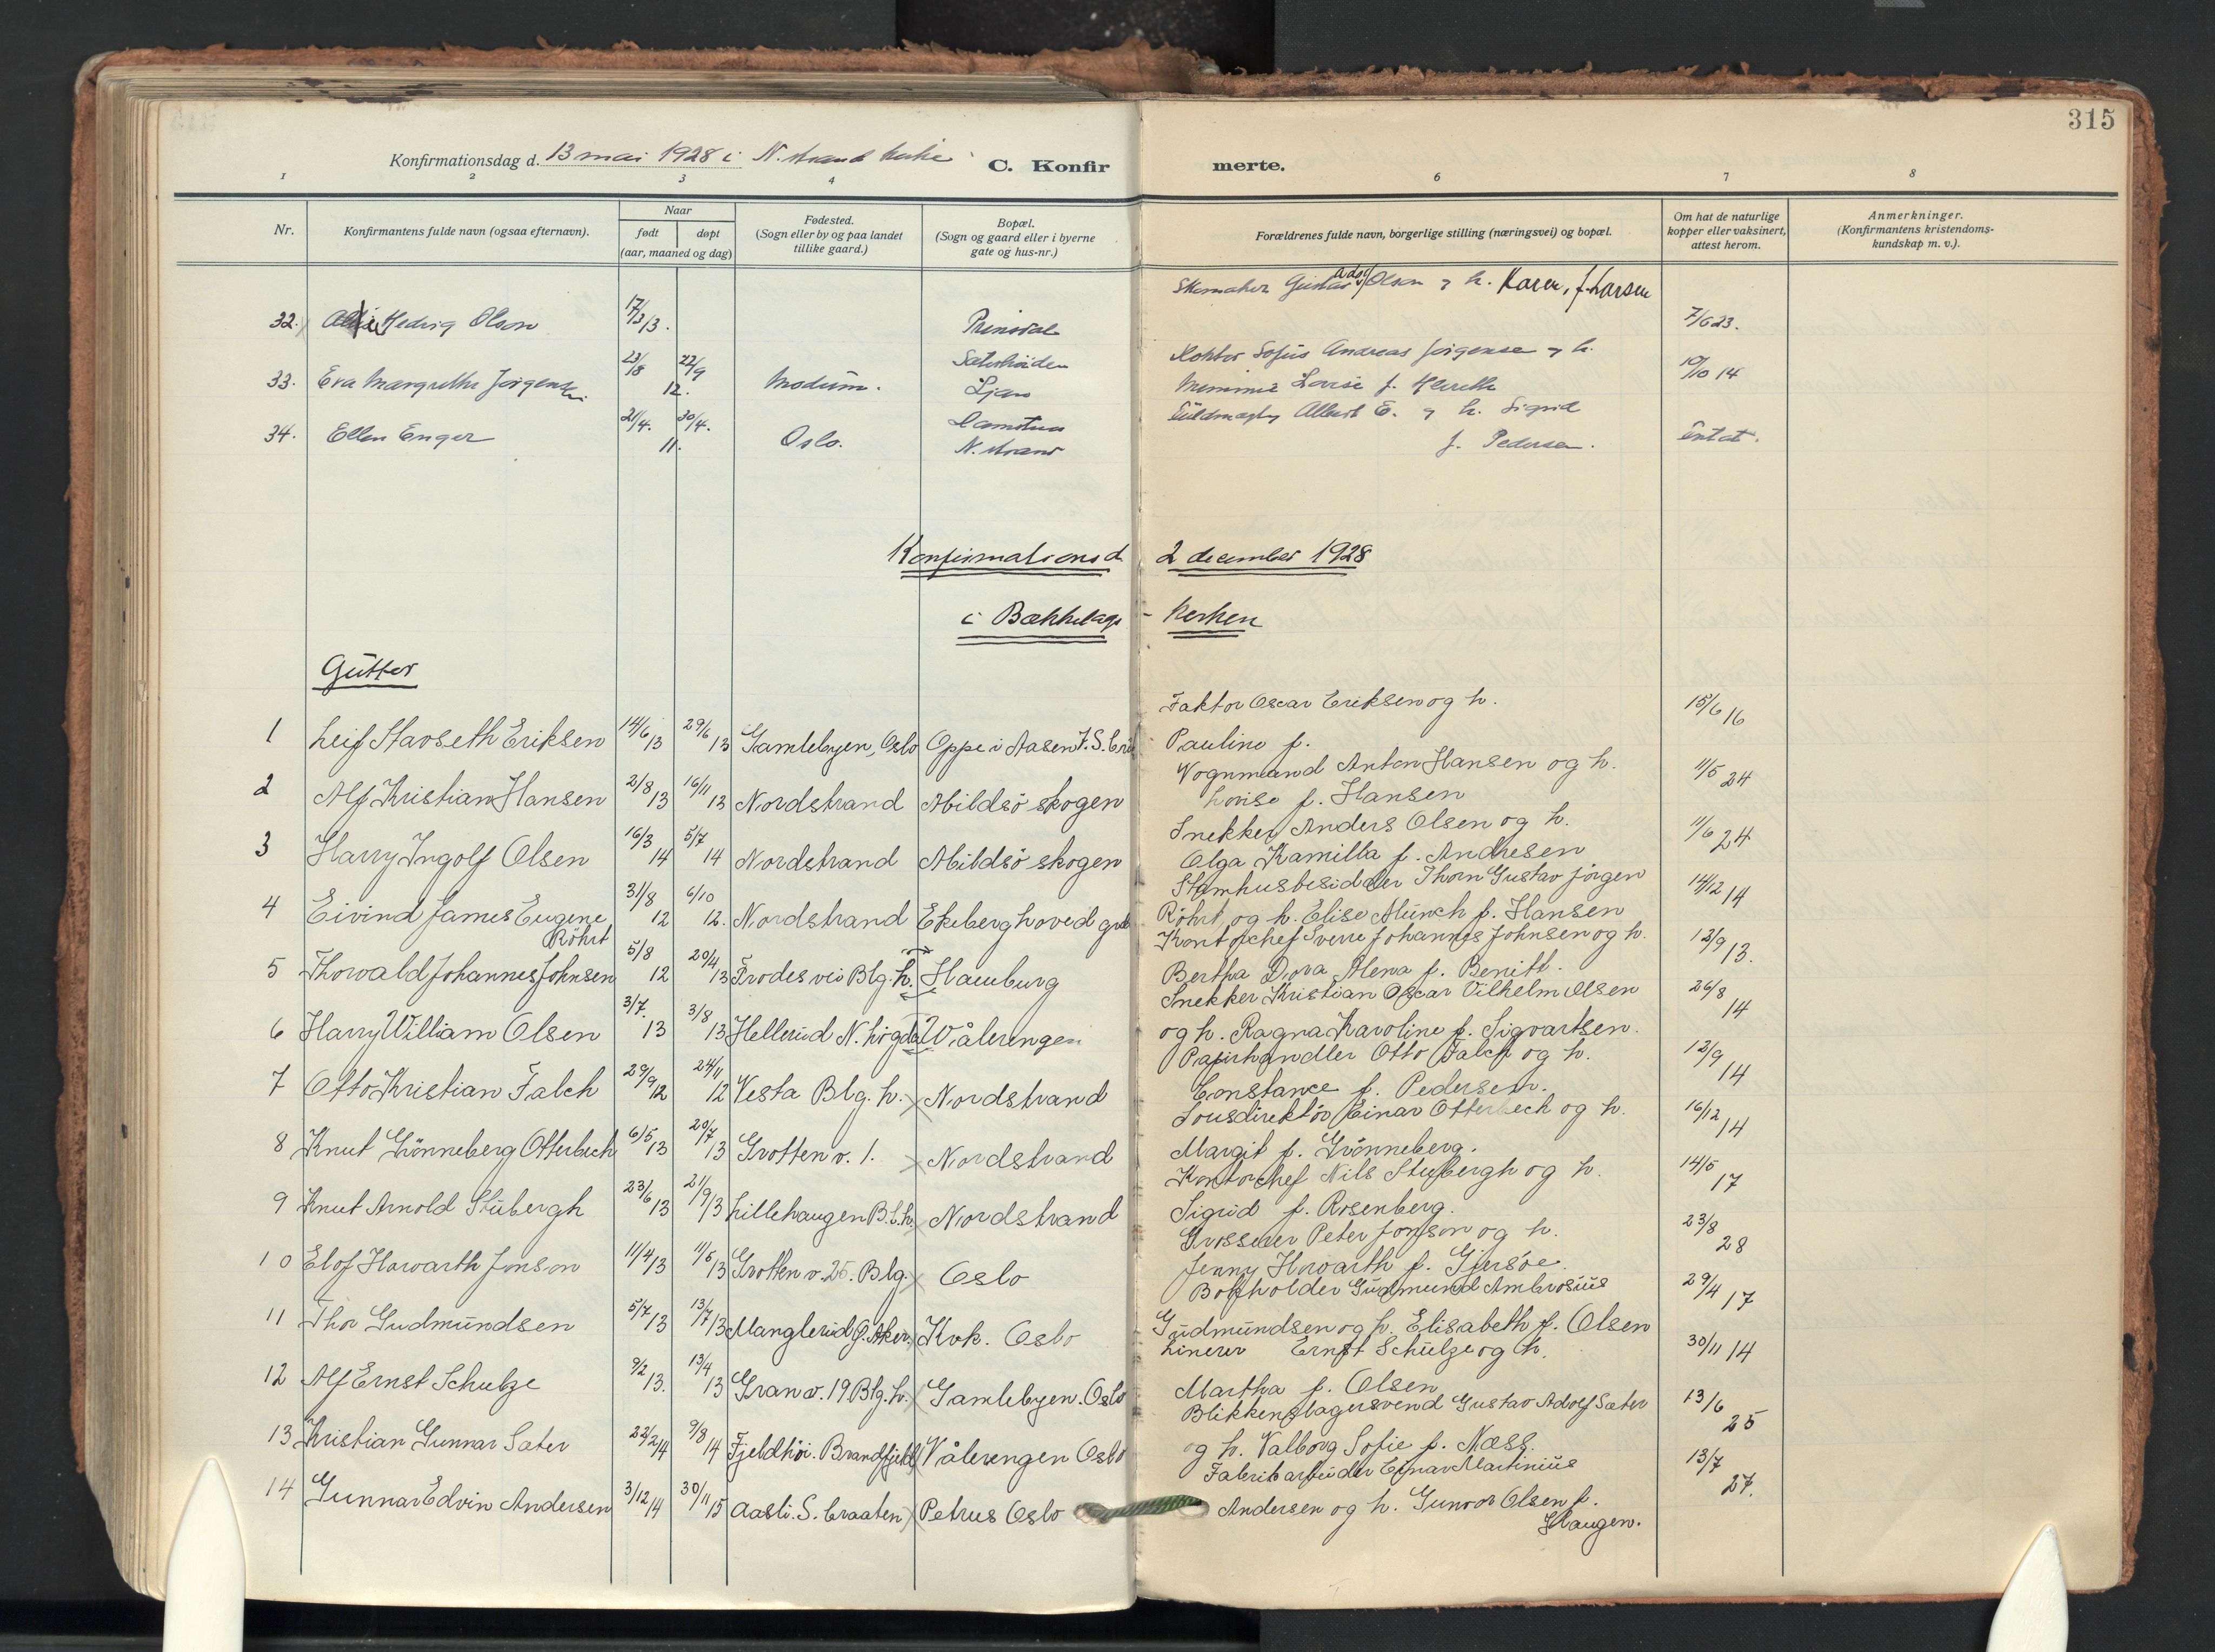 315
Konfirmationsdag d. 13 mai 1928 i N. strand kirke
C. Konfirmerte.
1 2 3 4 6 7 8
Nr.
Konfirmantens fulde navn (ogsaa efternavn).
Naar
født døpt
(aar, maaned og dag)
Fødested.
(Sogn eller by og paa landet
tillike gaard.)
Bopæl.
(Sogn og gaard eller i byerne
gate og hus-nr.)
Forældrenes fulde navn, borgerlige stilling (næringsvei) og bopæl.
Om hat de naturlige
kopper eller vaksinert,
attest herom.
Anmerkninger.
(Konfirmantens kristendoms-
kundskap m. v.).
Skomaker Gustav Adolf Olsen og h. Karen, f. Larsen
32. Hedvig Olsen 17/3 13. Prinsdal 7/6 23.
Kontor Sofus Andreas Jørgensen og h.
33. Eva Margrethe Jørgensen 23/8 22/9 12. Modum. Sæterheiden Ljan 10/10 14
Louise f.
Fuldmægtig Albert E. og h. Sigrid
34. Ellen Enger 21/4. 30/4. 11. Oslo. N. strand Entat.
f. Pedersen.
Konfirmationsd. 2 december 1928
i Bækkelags-kirken
Gutter
Faktor Oscar Eriksen og h.
1 Leif Starseth Eriksen 14/6 13 29/6 13 Gamlebyen, Oslo Oppe i Aasen 15/6 16
Pauline f.
Vognmand Anton Hansen og h.
2 Alf Kristian Hansen 2/8 13 16/11 13 Nordstrand Abildsö skogen 11/5 24
Lovise f. Hansen
Snekker Anders Olsen og h.
3 Harry Ingolf Olsen 16/3 14 5/7 14 Nordstrand Abildsö skogen 11/6 24
Olga Kamilla f. Andresen
Stamhusbesidder Thorn Gustav Jörgen
4 Eivind James Eugene Röhrt 31/8 12 6/10 12. Nordstrand Ekeberg hovedgrd 14/12 14
Röhrt og h. Elise Münch f. Hansen
Kontorchef Sverre Johannes Johnsen og h.
5 Thorvald Johannes Johnsen 5/8 12 20/4 13 Frodes vei Blg. h. Hamburg 12/9 13.
Bertha Dora Alena f. Benitt.
Snekker Kristian Oscar Vilhelm Olsen
6 Harry William Olsen 3/7. 13 3/8 13 Hellerud N. högda Vålerengen 26/8 14
og h. Ragna Karoline f. Sigvartsen.
Papirhandler Otto Falch og h.
7 Otto Kristian Falch 29/9 12 24/11 12 Vesta Blg. h. Nordstrand 12/9 14
Constance f. Pedersen.
Tousdirektör Einar Otterbech og h.
8 Knut Grönneberg Otterbech 6/5 13 20/7 13 Grotten v. 1. Nordstrand 16/12 14
Margit f. Grönneberg.
Kontorchef Nils Stubergh og h.
9 Knut Arnold Stubergh 23/6 13 21/9 13 Lillehaugen B.l.h. Nordstrand 14/5 17
Sigrid f. Rosenberg.
Grosserer Peter Jonson og h.
10 Elof Howarth Jonson 11/4 13 11/5 13 Grotten v. 25. Blg. Oslo 23/8 28
Jenny Howarth f. Gjersöe.
Bokholder Gudmund Ambrosius
11 Thor Gudmundsen 5/7 13 13/7 13 Manglerud Ö. Aker Kvk. Oslo 29/4 17
Gudmundsen og h. Elisabeth f. Olsen
Linerer Ernst Schulze og h.
12 Alf Ernst Schulze 9/2 13. 13/4 13 Gran v. 19 Blg. h. Gamlebyen. Oslo 30/11 14
Martha f. Olsen
Blikkenslagersvend Gustav Adolf Sæter
13 Kristian Gunnar Sæter 22/2 14 9/8 14 Fjeldhöi. Brandfjeld Vålerengen Oslo 13/6 25
og h. Valborg Sofie f. Næss.
Fabrikarbeider Einar Martinius
14 Gunnar Edvin Andersen 3/12 14 30/11 15 Aasli. S. Craaten Petrus Oslo 13/7 27.
Andersen og h. Gunvor Olsen f.
Haugen.